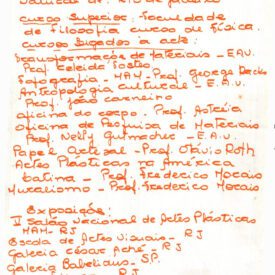 natural de: Rio de Janeiro
curso Superior: Faculdade
de Filosofia curso de Física.
cursos ligados a arte:
Transformação de Materiais - E.A.V.
Prof. Celeida Tostes
Fotografia - MAM - Prof. George
Antropologia Cultural - E.A.V.
Prof. João Carneiro
oficina do corpo. Prof.
oficina de Pesquisa de Materiais
Prof. Nelly Gutmacher - E.A.V.
Papel Artesal - Prof. Otávio Roth
Artes Plasticas na América
Latina - Prof. Frederico Morais
Muralismo - Prof. Frederico Morais
Exposições:
V Salão Nacional de Artes Plásticas
MAM - RJ
Escola de Artes Visuais - RJ
Galeria César Aché - RJ
Galeria - S.P.